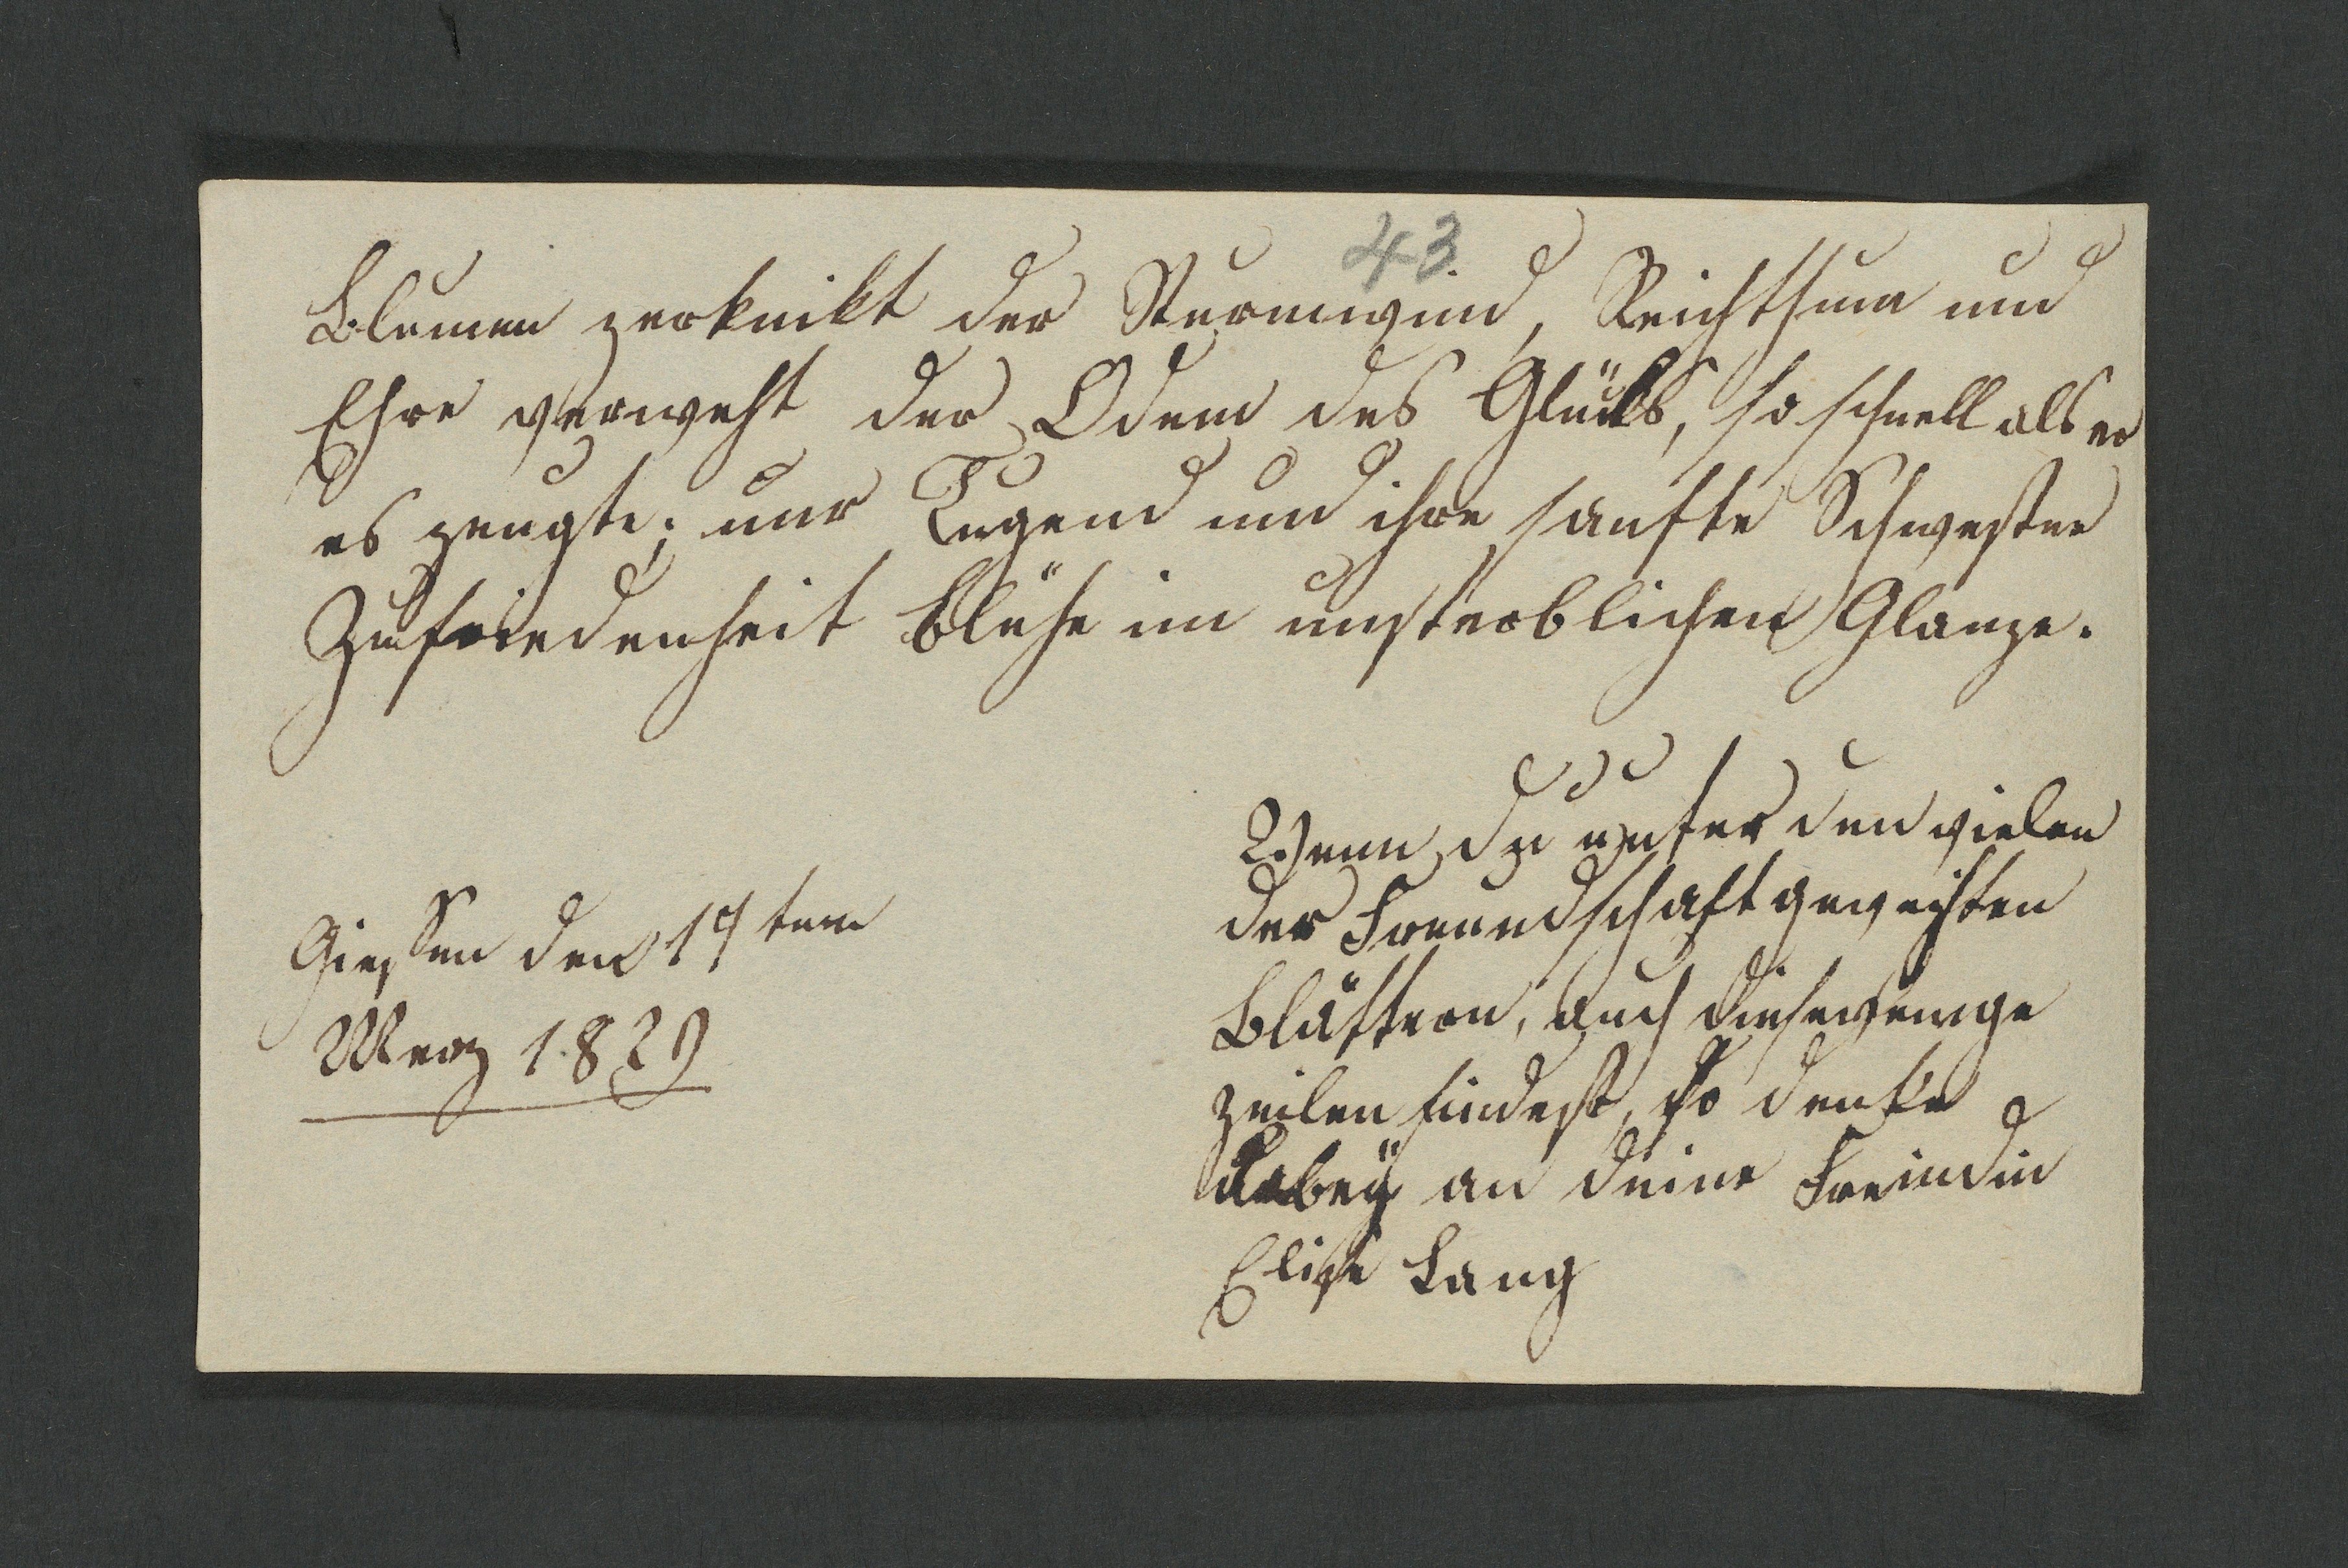 43
Blumen zerknikt der Sturmwind, Reichthum und
Ehre verweht der Odem des Glücks, so schnell als er
es zeugte; nur Tugend und ihre sanfte Schwester
Zufriedenheit blühe im unsterblichen Glanze.
Wenn du unter den vielen
der Freundschaft geweihten
Blättern, auch diese wenige
zeilen findest, so denke
dabeÿ an deine Freindin
Elise Lang
Giessen den 19ten
Merz 1829